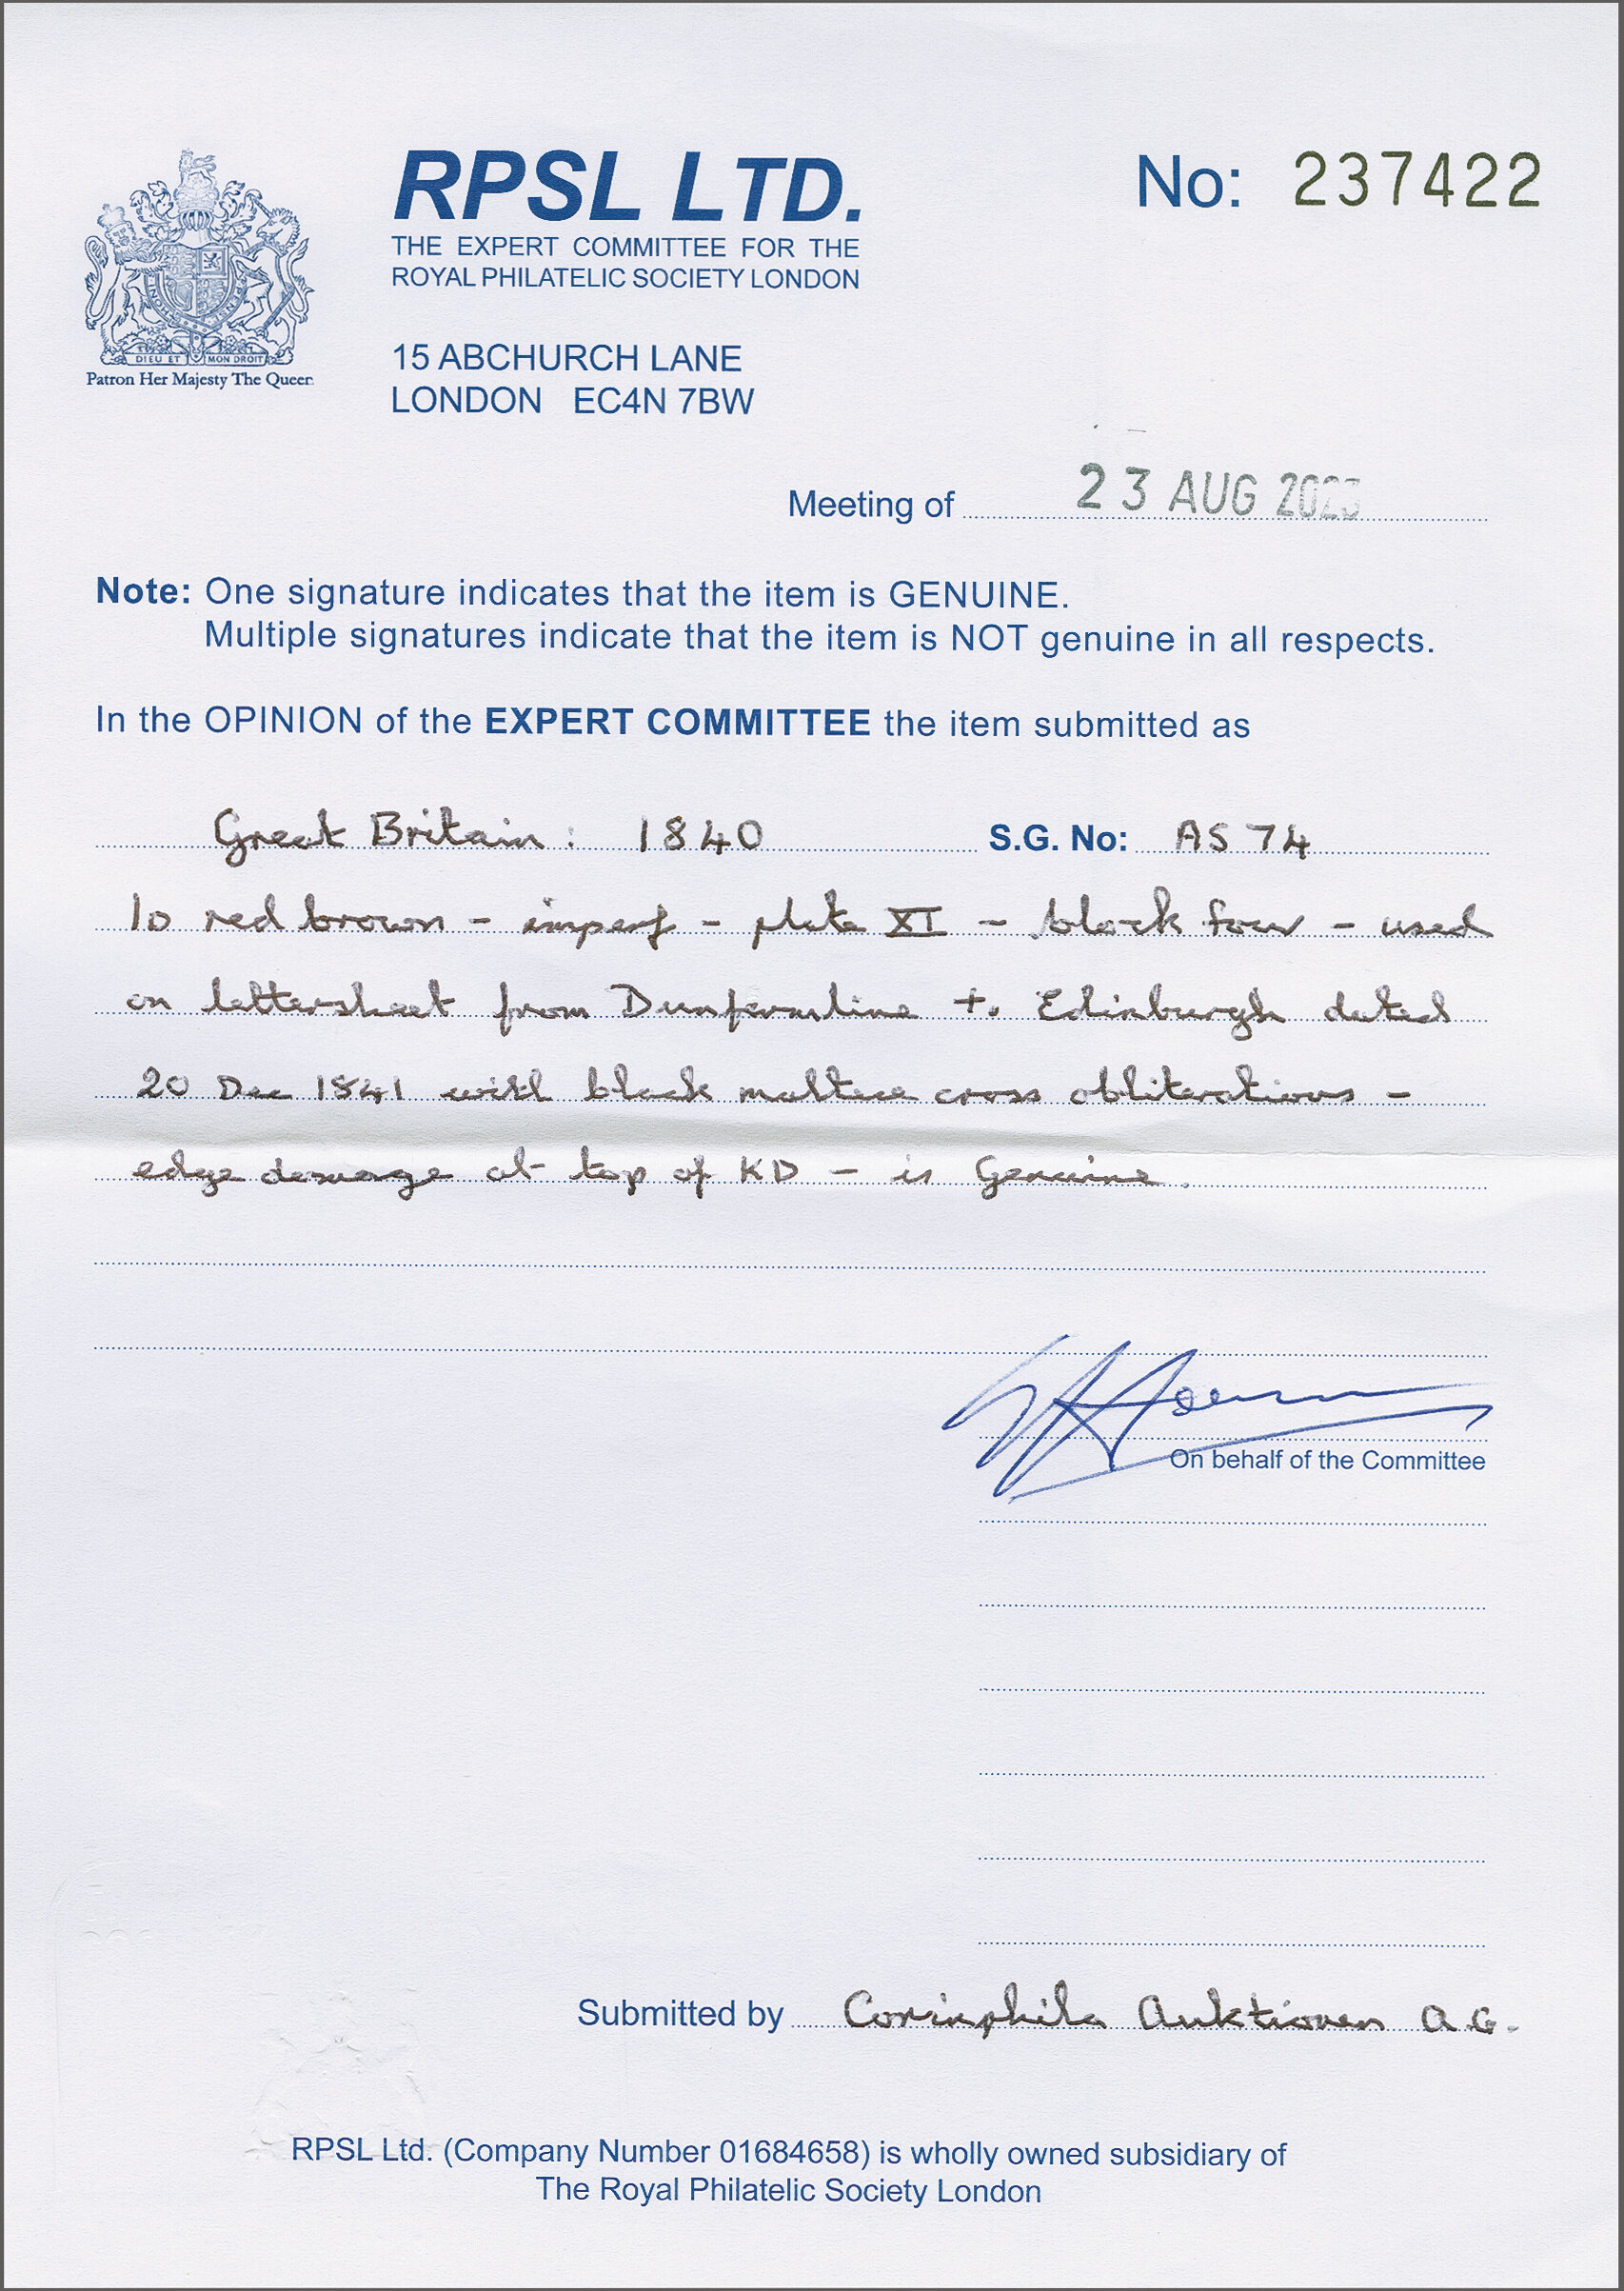 RPSL LTD.
THE EXPERT COMMITTEE FOR THE
ROYAL PHILATELIC SOCIETY LONDON
No: 237422
DIEU ET MON DROIT
Patron Her Majesty The Queen
15 ABCHURCH LANE
LONDON EC4N 7BW
Meeting of 23 AUG 2023
Note: One signature indicates that the item is GENUINE.
Multiple signatures indicate that the item is NOT genuine in all respects.
In the OPINION of the EXPERT COMMITTEE the item submitted as
Great Britain: 1840 S.G. No: AS 74
1D red brown - imperf - plate XI - block four - used
on lettersheet from Dunfermline to Edinburgh dated
20 Dec 1841 with black maltese cross obliterations -
edge damage at top of KD - is Genuine.
On behalf of the Committee
Submitted by Corinphila Auktionen A.G.
RPSL Ltd. (Company Number 01684658) is wholly owned subsidiary of
The Royal Philatelic Society London